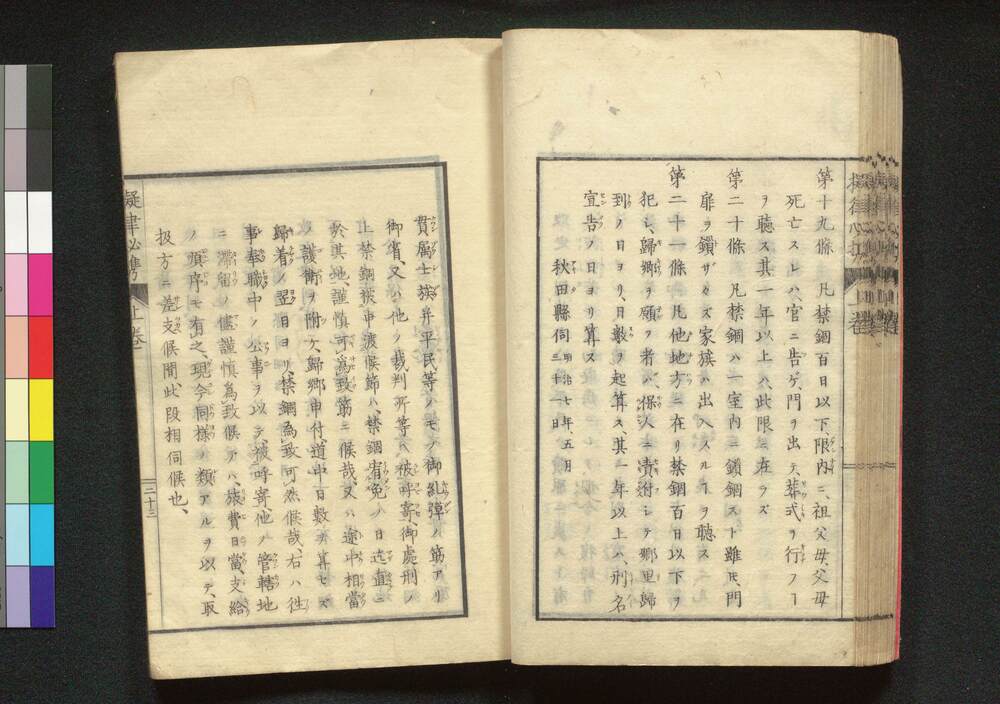 第十九條 凡禁錮百日以下限内ニ、祖父母、父母
死亡スレハ、官ニ告ケ、門ヲ出テ、葬式ヲ行フヿ
ヲ聽ス其一年以上ハ、此限ニ在ラズ
第二十條 凡禁錮ハ一室内ニ鎖錮スト雖モ、門
扉ヲ鎖サズ家族ハ出入スルヿヲ聽ス
第二十一條 凡他地方ニ在リ禁錮百日以下ヲ
犯シ、歸鄕ヲ願フ者ハ、保人ニ責付シテ鄕里歸
到ノ日ヨリ、日數ヲ起算ス、其一年以上ハ、刑名
宣告ノ日ヨリ算ス
秋田縣伺 明治七年五月三十一日
貫属士族并平民等ノモノ御糺彈ノ筋アリ
御省又ハ他ノ裁判所等ヘ被呼寄、御處刑ノ
止禁錮被申渡候節ハ、禁錮宥免ノ日迄直ニ
於其地、謹愼可爲致筋ニ候哉、又ハ途中相當
ノ護衛ヲ附ケ歸鄕申付、道中日數ヲ算セズ
歸着ノ翌日ヨリ、禁錮爲致可然候哉、右ハ往
事奉職中ノ公事ヲ以テ、被呼寄、他ノ管轄地
ニ滯留ノ儘謹愼爲致候テハ、旅費日當、支給
ノ順序モ有之、現今同様ノ類アルヲ以テ、取
扱方ニ差支候間此段相伺候也、
擬律必携 上巻 三十三